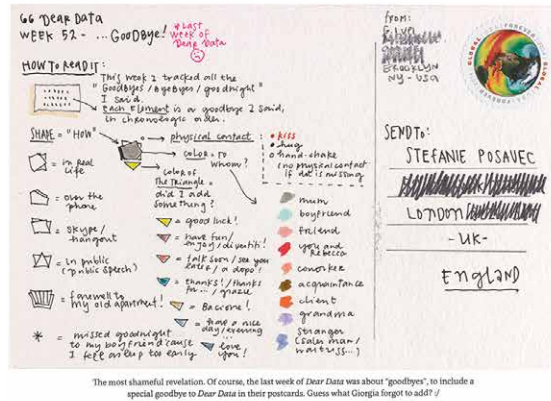 66 Dear Data
WEEK 52 - ... GOODBYE!
* LAST
week of
Dear Data
HOW TO READ IT:
This week I tracked all the
"Goodbyes / byebyes / goodnight"
I said.
Each Element is a goodbye I said,
in chronologic order.
SHAPE = "HOW"
= in real
life
= over the
phone
= skype/
hangout
= in public
(public speech)
= farewell to
my old apartment!
* = missed goodnight
to my boyfriend 'cause
I fell asleep too early
physical contact:
COLOR = TO
whom?
COLOR OF
The Triangle =
did I add
something?
= good luck!
= have fun/
enjoy/divertiti!
= talk soon/see you
later/a dopo!
= thanks!/thanks
for.../grazie
= Bacione!
= have a nice
day/evening
= love
you!
• kiss
• hug
• hand-shake
(no physical contact
if dot is missing
mum
boyfriend
friend
you and
Rebecca
coworker
acquaintance
client
grandma
stranger
(sales man/
waitress...)
from:
BROOKLYN
NY - USA
GLOBAL FOREVER
SEND TO:
STEFANIE POSAVEC
LONDON
-UK-
ENGLAND
The most shameful revelation. Of course, the last week of Dear Data was about "goodbyes", to include a
special goodbye to Dear Data in their postcards. Guess what Giorgia forgot to add? :/